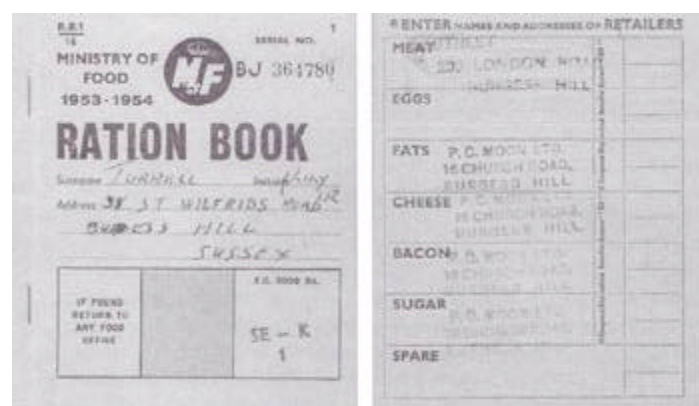 R.B.1
16
MINISTRY OF
FOOD
1953-1954
MF
SERIAL NO. 1
BJ 364780
RATION BOOK
Surname
Address 38 ST WILFRIDS ROAD
BURGESS HILL
SUSSEX
IF FOUND
RETURN TO
ANY FOOD
OFFICE
F.O. CODE No.
SE - K
1
ENTER NAMES AND ADDRESSES OF RETAILERS
MEAT
LONDON ROAD
BURGESS HILL
EGGS
FATS P. C. MOON LTD.
16 CHURCH ROAD,
BURGESS HILL
CHEESE P. C. MOON LTD.
16 CHURCH ROAD,
BURGESS HILL
BACON P. C. MOON LTD.
16 CHURCH ROAD,
BURGESS HILL
SUGAR P. C. MOON LTD.
16 CHURCH ROAD,
BURGESS HILL
SPARE